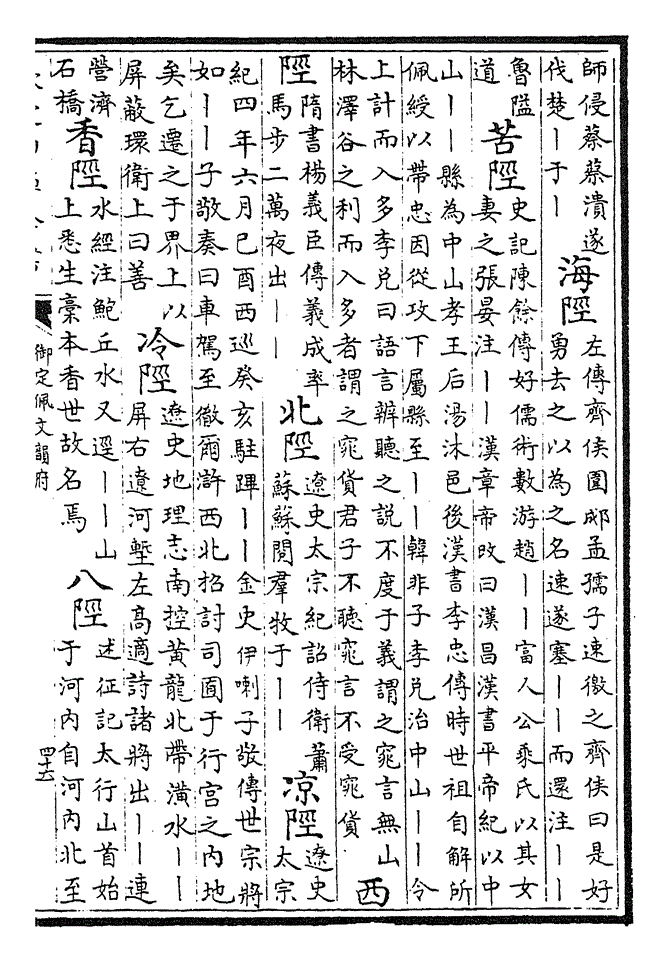 師侵蔡蔡潰遂
伐楚丨于丨
海陘
左傳齊侯圍郕孟孺子速徼之齊侯曰是好
勇去之以為之名速遂塞丨丨而還注丨丨
魯隘
道
苦陘
史記陳餘傳好儒術數游趙丨丨富人公乘氏以其女
妻之張晏注丨丨漢章帝改曰漢昌漢書平帝紀以中
山丨丨縣為中山孝王后湯沐邑後漢書李忠傳時世祖自解所
佩綬以帶忠因從攻下屬縣至丨丨韓非子李兌治中山丨丨令
上計而入多李兌曰語言辨聽之說不度于義謂之窕言無山
林澤谷之利而入多者謂之窕貨君子不聽窕言不受窕貨
西
陘
隋書楊義臣傳義成率
馬步二萬夜出丨丨
北陘
遼史太宗紀詔侍衛蕭
蘇蘇閱羣牧于丨丨
凉陘
遼史
太宗
紀四年六月己酉西巡癸亥駐蹕丨丨金史伊喇子敬傳世宗將
如丨丨子敬奏曰車駕至徹爾滸西北招討司圍于行宮之內地
矣乞遷之于界上以
屏蔽環衛上曰善
冷陘
遼史地理志南控黃龍北帶潢水丨丨
屏右遼河塹左高適詩諸將出丨丨連
營濟
石橋
香陘
水經注鮑丘水又逕丨丨山
上悉生藁本香世故名焉
八陘
述征記太行山首始
于河內自河內北至
御定佩文韻府
四十六